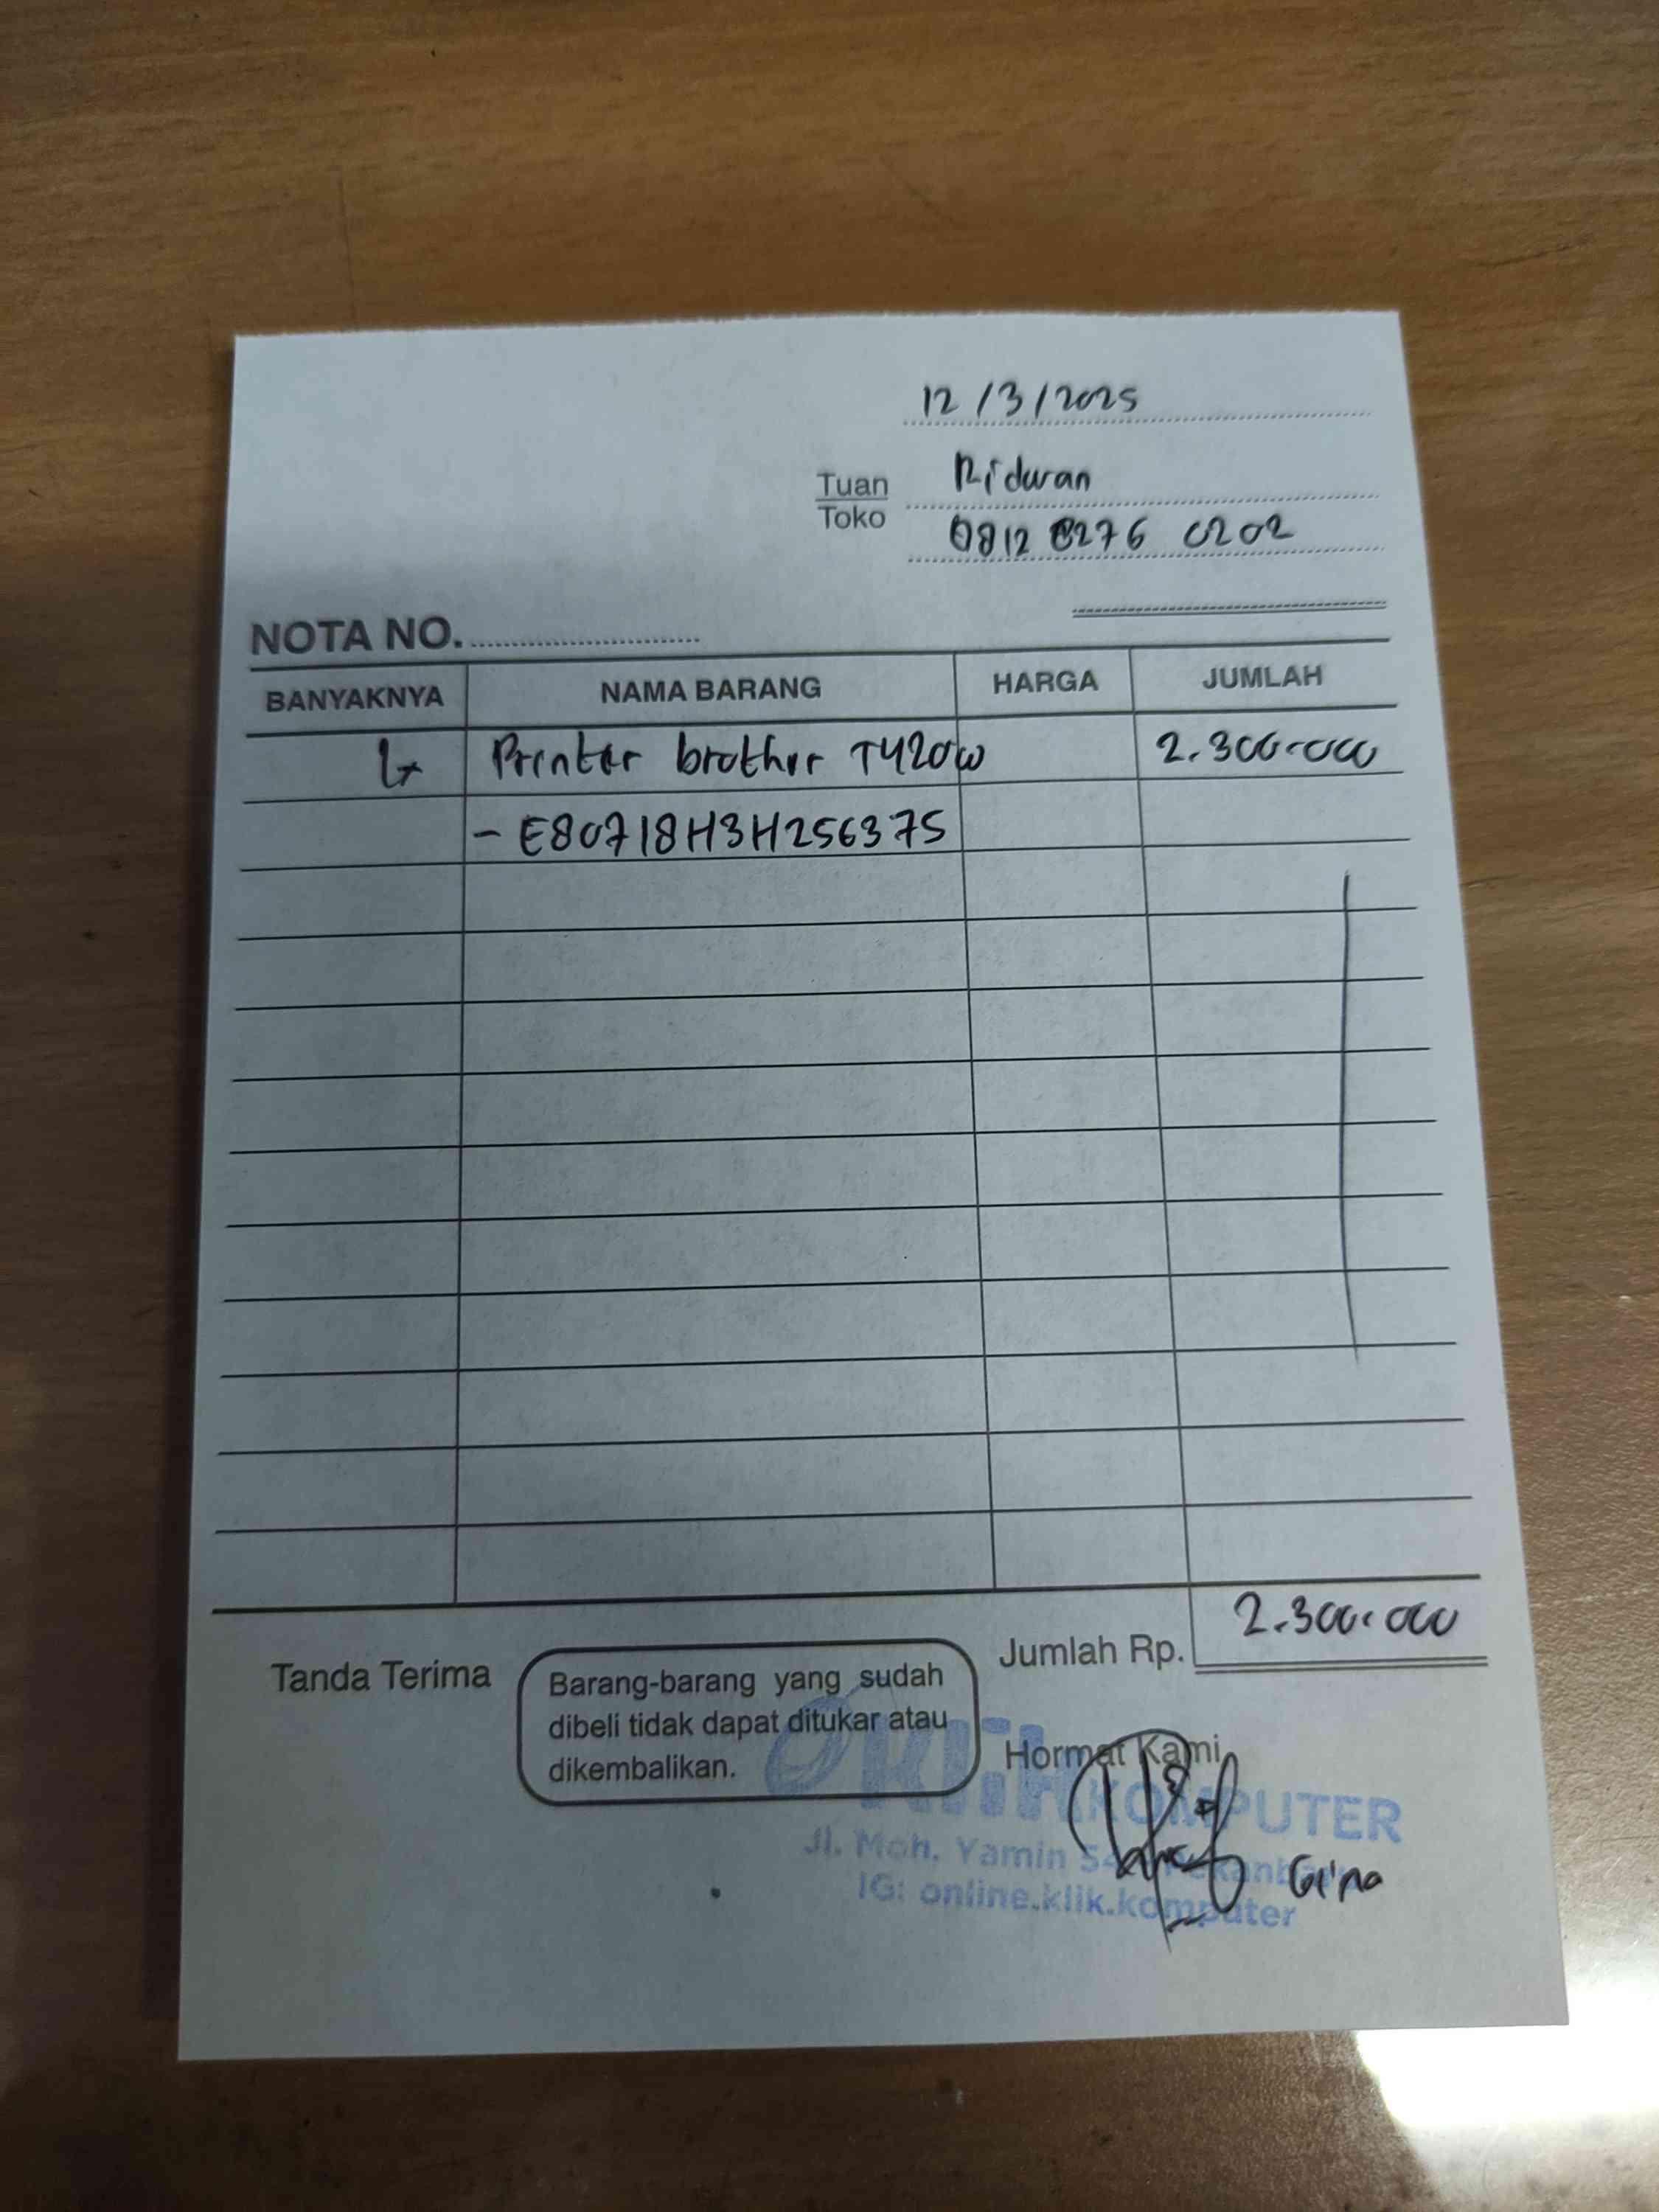 12/3/2025
Tuan Riduwan
Toko 0812 8276 0202
NOTA NO.
BANYAKNYA NAMA BARANG HARGA JUMLAH
1x Printer brother T420w 2.300.000
- E80718H3H256375
Jumlah Rp. 2.300.000
Tanda Terima
Barang-barang yang sudah
dibeli tidak dapat ditukar atau
dikembalikan.
Hormat Kami,
Klik KOMPUTER
Jl. Moh. Yamin
Gina
IG: online.klik.komputer